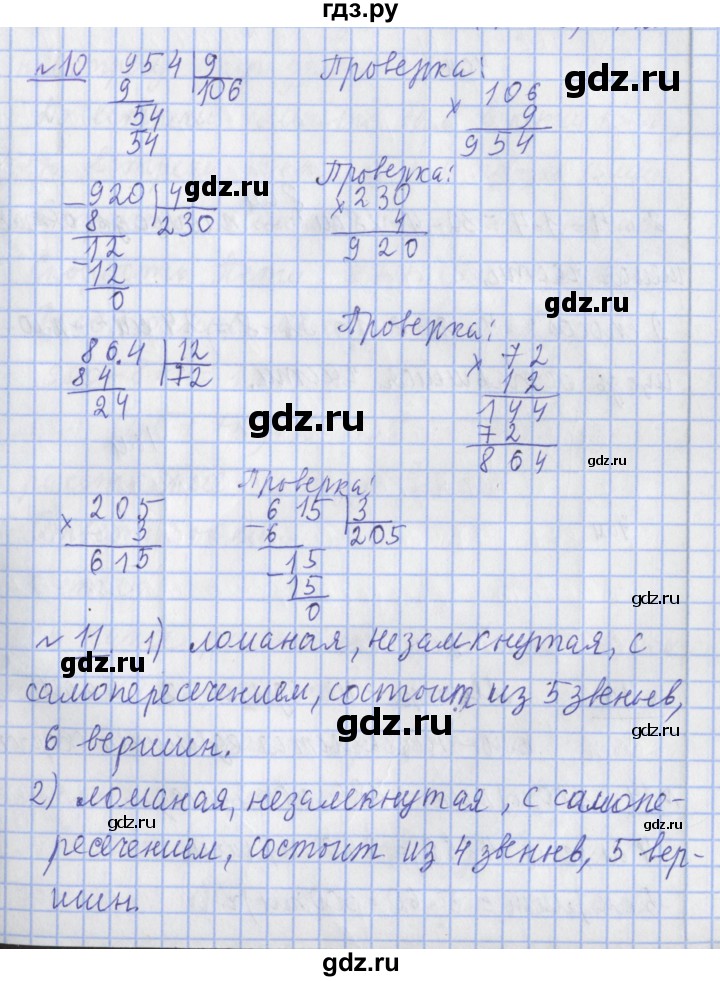 гдз.ру
№10 954 9 Проверка:
9 106 × 106
54 9
54 954
gdz.ru
Проверка:
− 920 4 × 230
gdz.ru
8 230 4
− 12 920
12
0
gdz.ru
Проверка:
86.4 12 × 72
84 72 12
24 144
gdz.ru
72
864
gdz.ru
Проверка:
× 205 − 615 3
3 6 205
615 15
− 15
0
gdz.ru
№11 1) ломаная, незамкнутая, с
gdz.ru
самопересечением, состоит из 5 звеньев,
gdz.ru
6 вершин.
2) ломаная, незамкнутая, с самопе-
gdz.ru
ресечением, состоит из 4 звеньев, 5 вер-
gdz.ru
шин.
gdz.ru